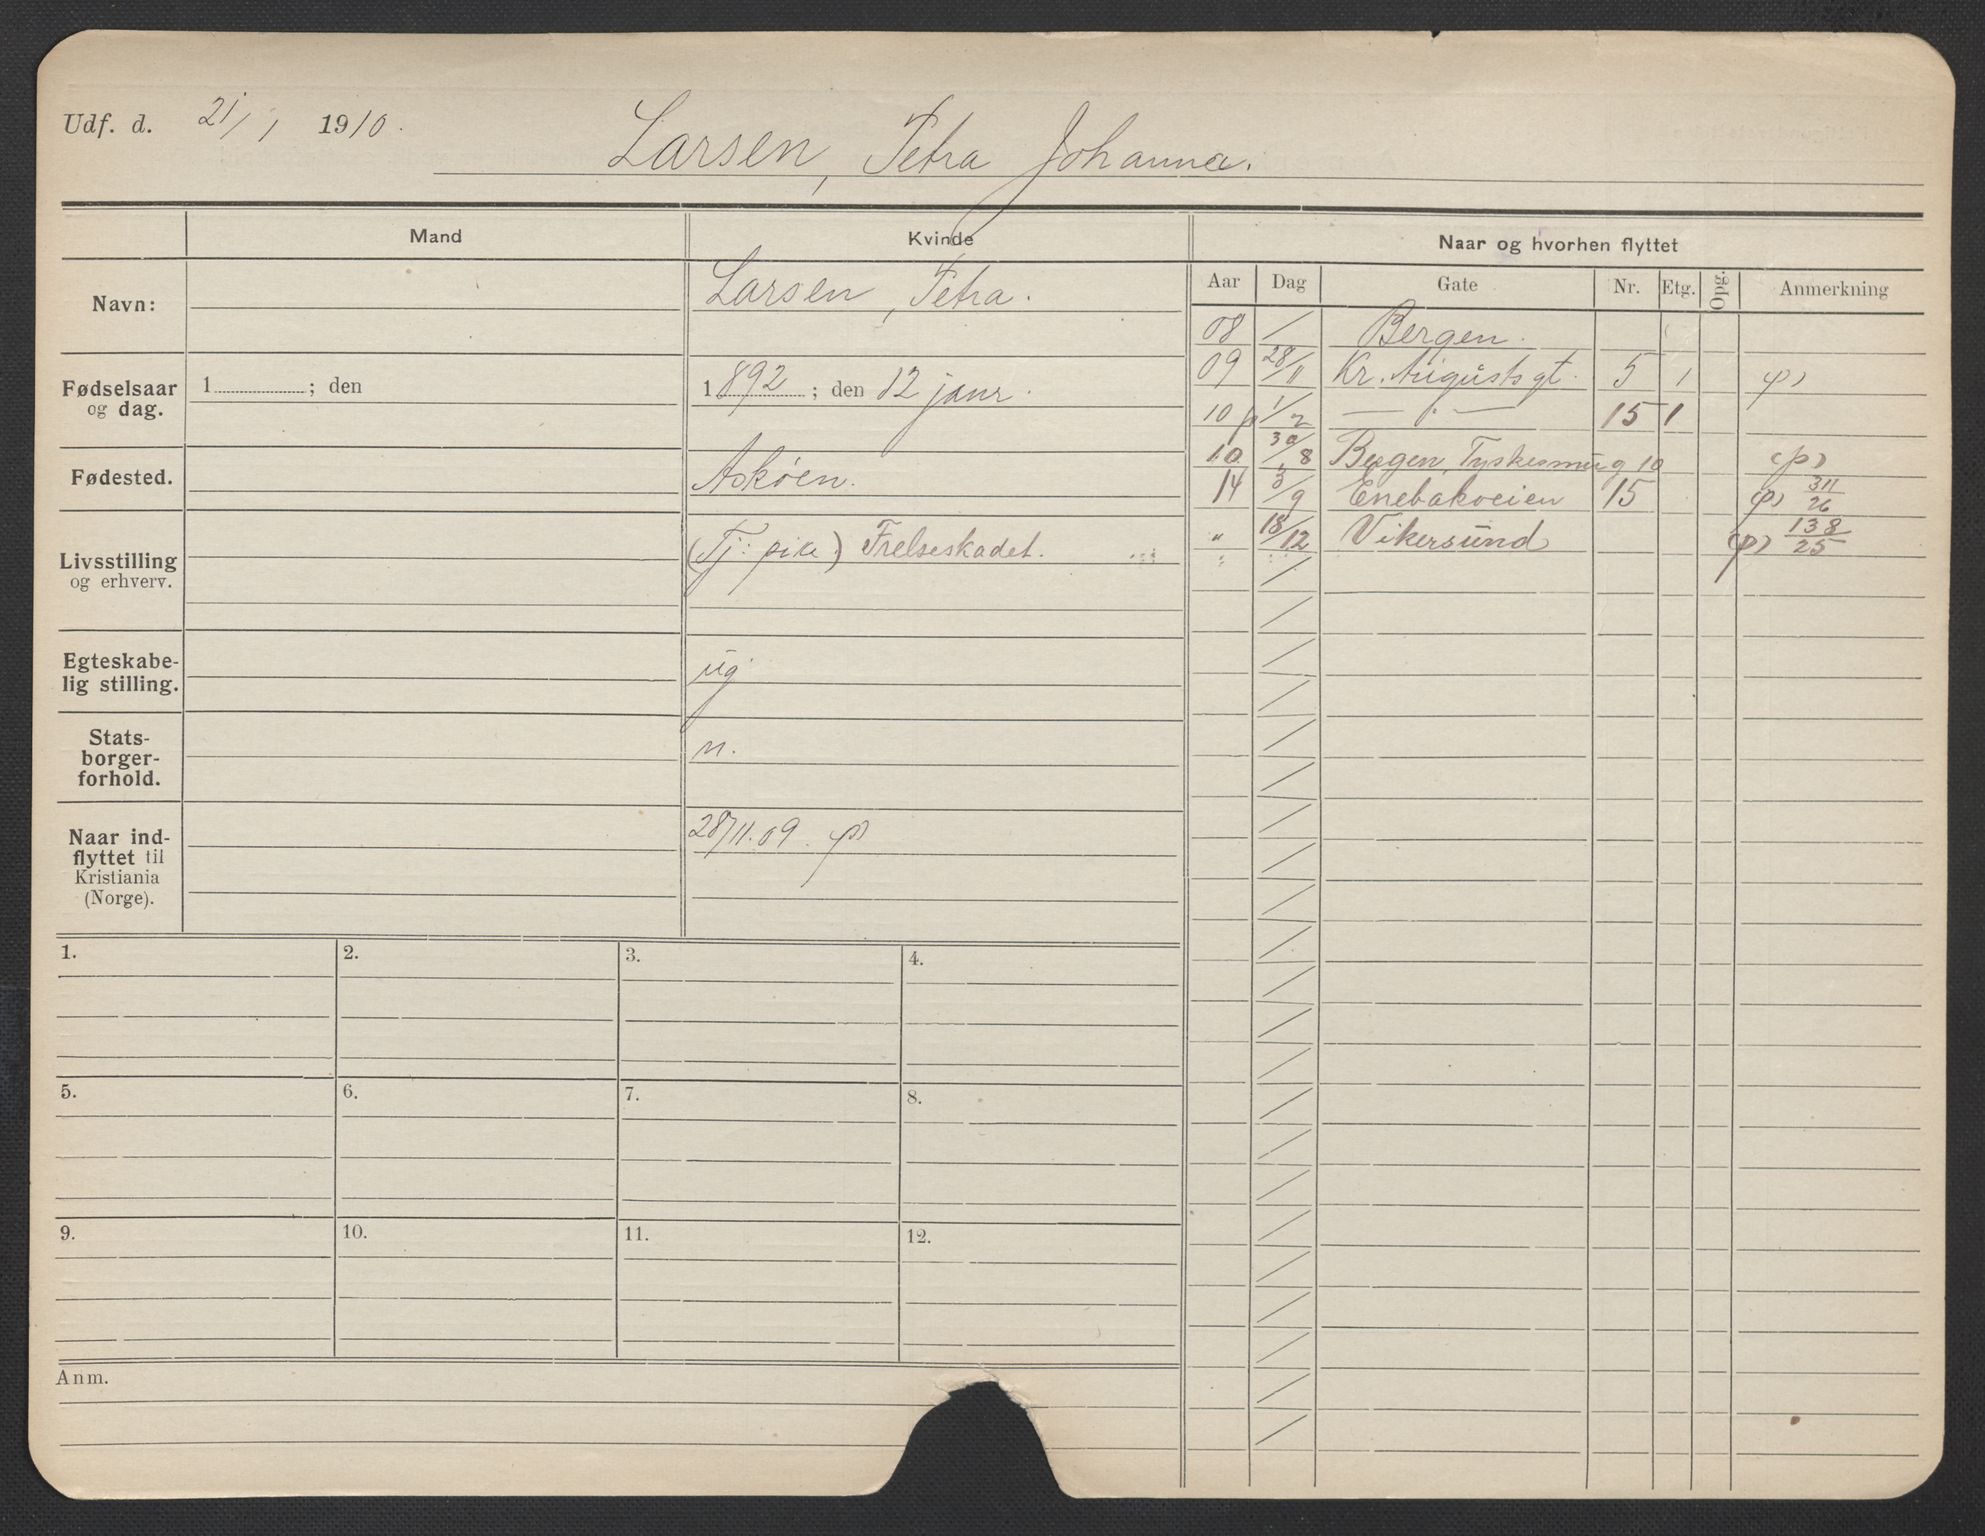 Udf. d. 21/1 1910.
Larsen, Petra Johanna.
Mand
Kvinde
Naar og hvorhen flyttet
Navn:
Larsen, Petra.
Aar Dag Gate Nr. Etg. Opg. Anmerkning
08 / Bergen.
09 28/11 Kr. Augustsgt. 5 1 (p)
10 p 1/2 — " — 15 1
10 30/8 Bergen, Tyskesmug 10 (p)
14 3/9 Enebakveien 15 (p) 311/26
" 18/12 Vikersund (p) 138/25
Fødselsaar og dag.
1 ; den
1892 ; den 12 janr.
Fødested.
Askøen.
Livsstilling og erhverv.
(Tj: pike) Frelseskadet.
Egteskabe-
lig stilling.
ug
Stats-
borger-
forhold.
n.
Naar ind-
flyttet til
Kristiania
(Norge).
28/11.09. (p)
1. 2. 3. 4.
5. 6. 7. 8.
9. 10. 11. 12.
Anm.